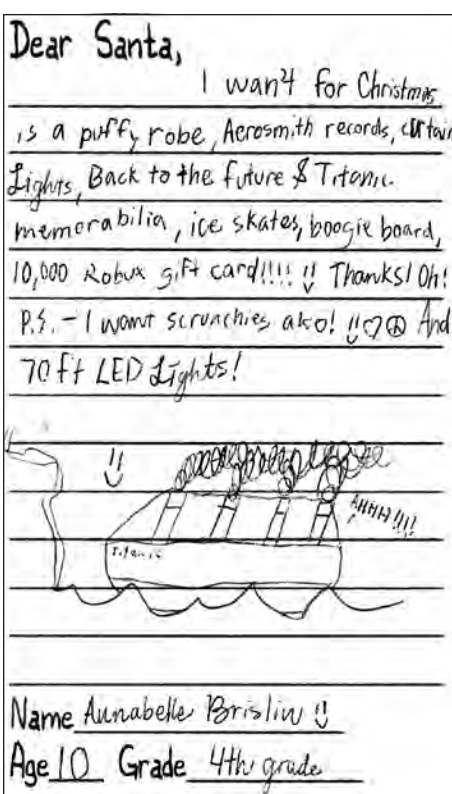 Dear Santa,
I want for Christmas
is a puffy robe, Aerosmith records, curtain
Lights, Back to the future & Titanic
memorabilia, ice skates, boogie board,
10,000 Robux gift card!!!! !! Thanks! Oh!
P.S. - I want scrunchies also! !! ♡ ☮ And
70 ft LED Lights!
AHHH!!!!
Titanic
Name Annabelle Brislin
Age 10 Grade 4th grade